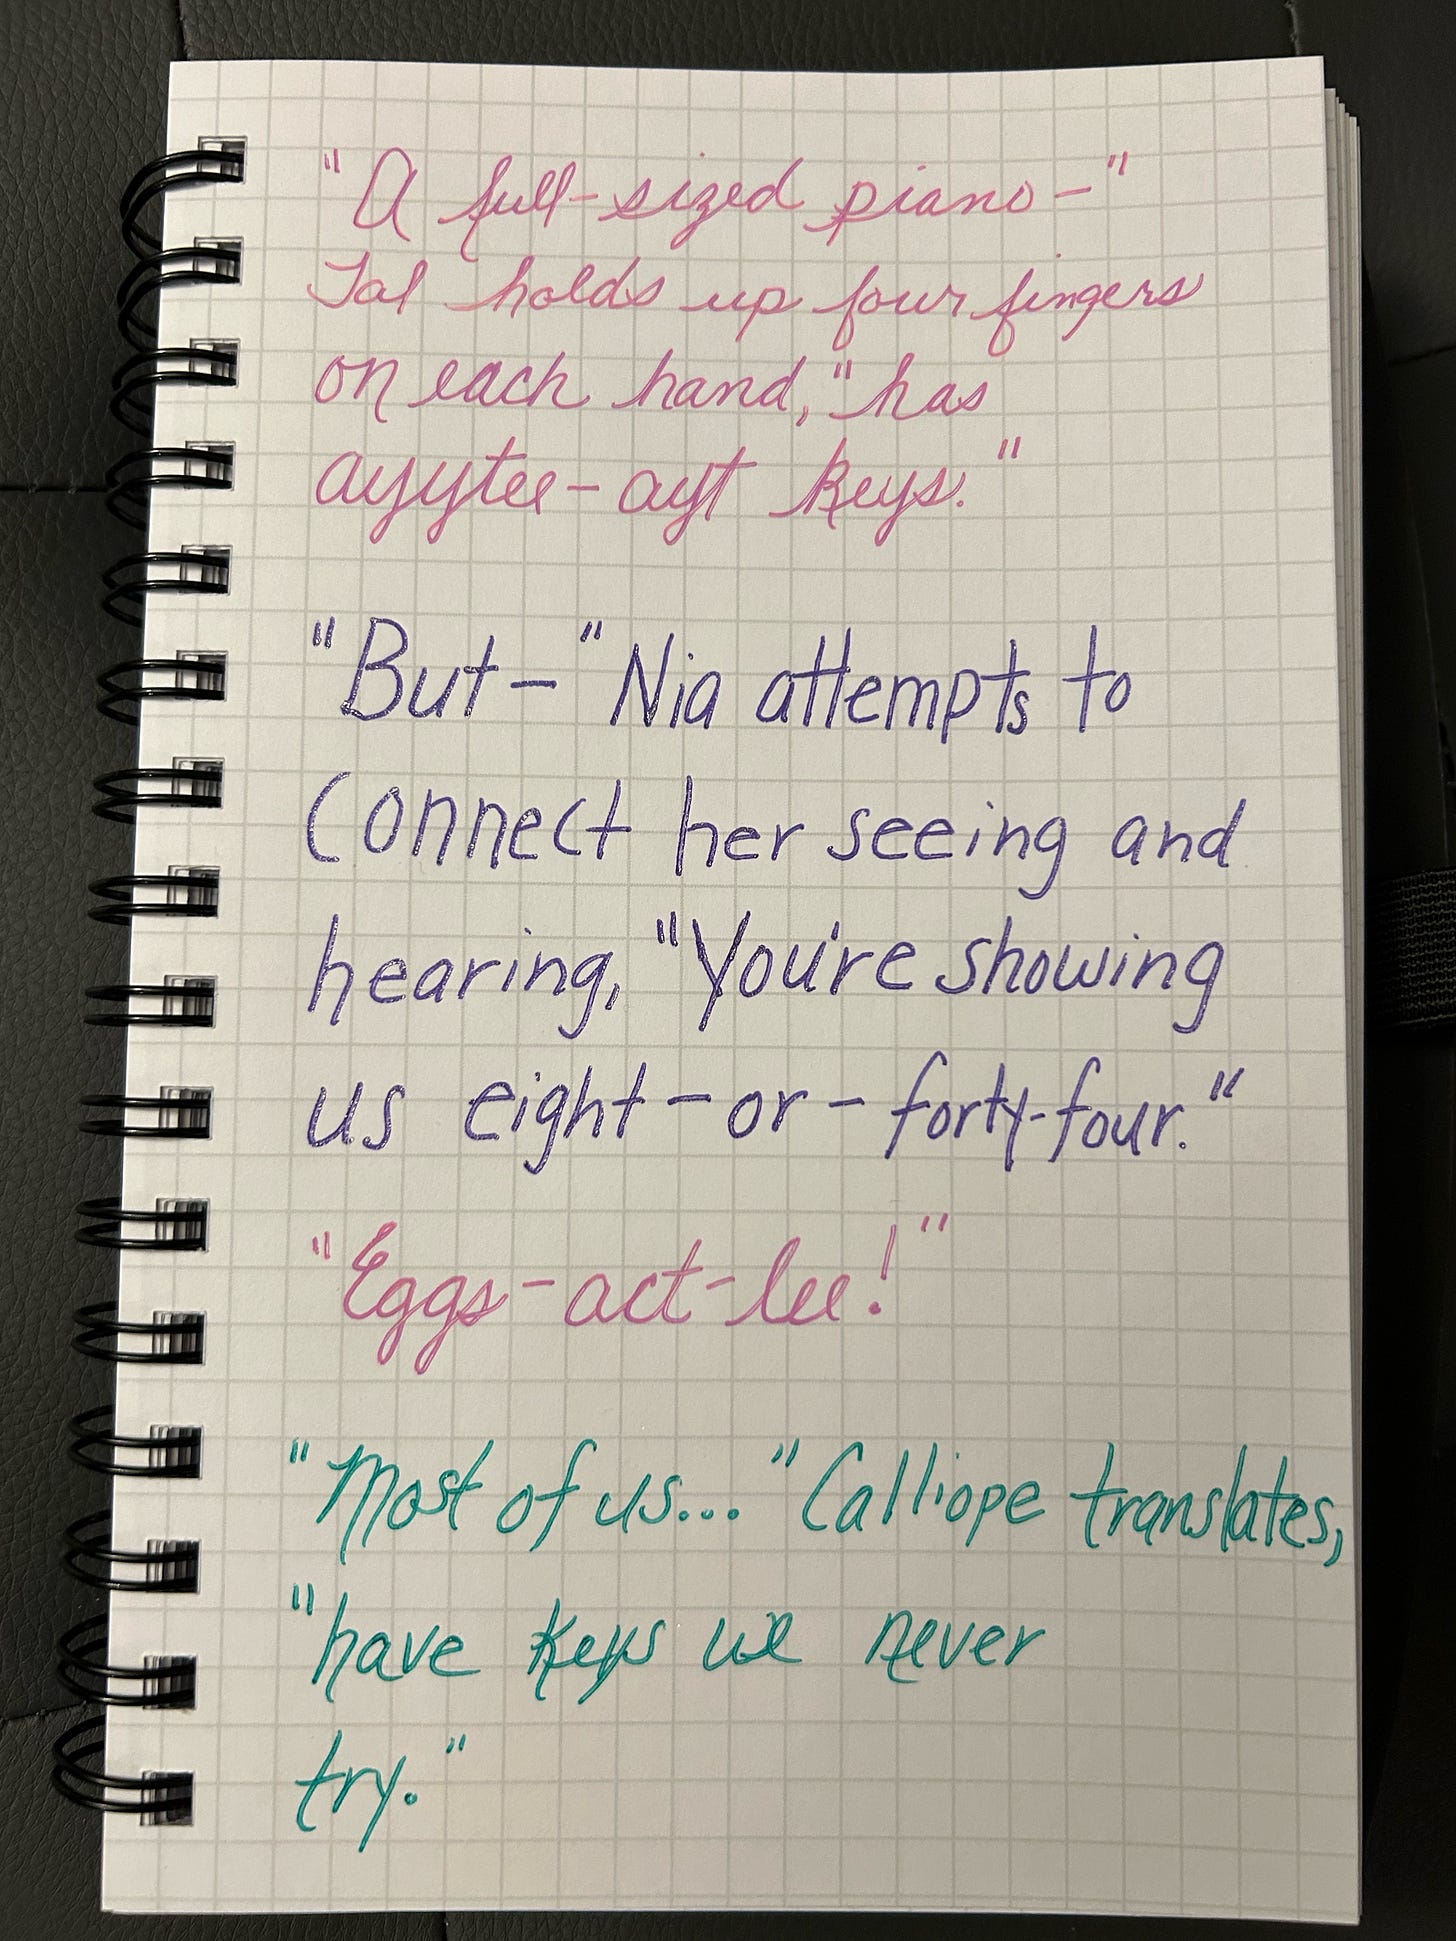 "A full-sized piano-"
Tal holds up four fingers
on each hand, "has
ayytee-ayt keys."
"But-" Nia attempts to
connect her seeing and
hearing, "You're showing
us eight-or-forty-four."
"Eggs-act-lee!"
"Most of us..." Calliope translates,
"have keys we never
try."